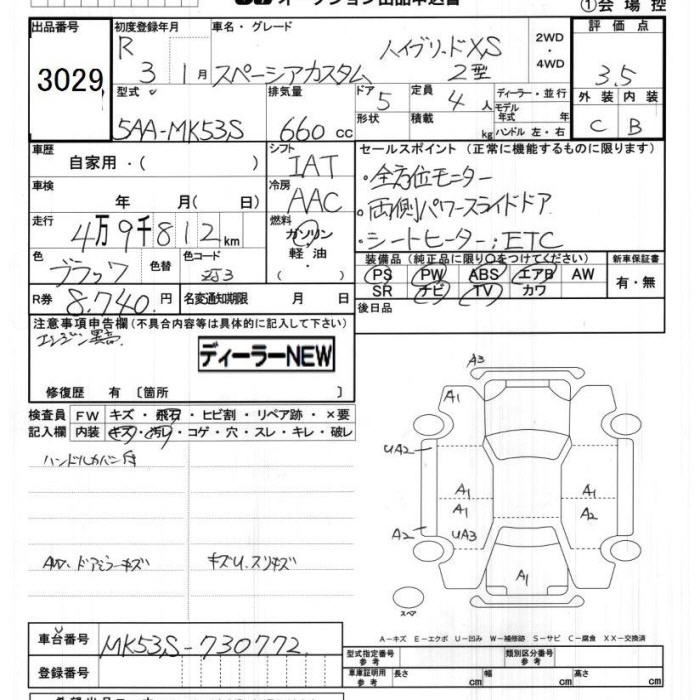 オークション出品申込書
①会 場 控
出品番号 初度登録年月 車名・グレード 評 価 点
3029 R 3 1月 スペーシアカスタム ハイブリッドXS 2型 2WD・4WD 3.5
型式 排気量 ドア 5 定員 4人 ディーラー・並行 外 装 内 装
5AA-MK53S 660cc 形状 積載 kg モデル年式 年 ハンドル 左・右 C B
車歴 自家用・( ) シフト IAT セールスポイント (正常に機能するものに限ります)
車検 年 月( 日) 冷房 AAC ・全方位モニター
走行 4万9千812km 燃料 ガソリン・軽油・( ) ・両側パワースライドドア
・シートヒーター;ETC
色 ブラック 色替 色コード ZJ3 装備品 (純正品に限り○をつけてください) 新車保証書
PS PW ABS エアB AW 有・無
R券 8,740円 名変通知期限 月 日 SR ナビ TV カワ
注意事項申告欄(不具合内容等は具体的に記入して下さい) 後日品
ディーラーNEW
修復歴 有 〔箇所 〕
検査員 FW キズ・飛石・ヒビ割・リペア跡・×要
記入欄 内装 キズ・汚れ・コゲ・穴・スレ・キレ・破レ
A3
A1 A1
UA2
A1 A1
A1 A2
A2 UA3
A1
スペア
A-キズ E-エクボ U-凹み W-補修跡 S-サビ C-腐食 XX-交換済
車台番号 MK53S-730772
型式指定番号 参考 類別区分番号 参考
登録番号 車庫証明用 参考 長さ cm 幅 cm 高さ cm